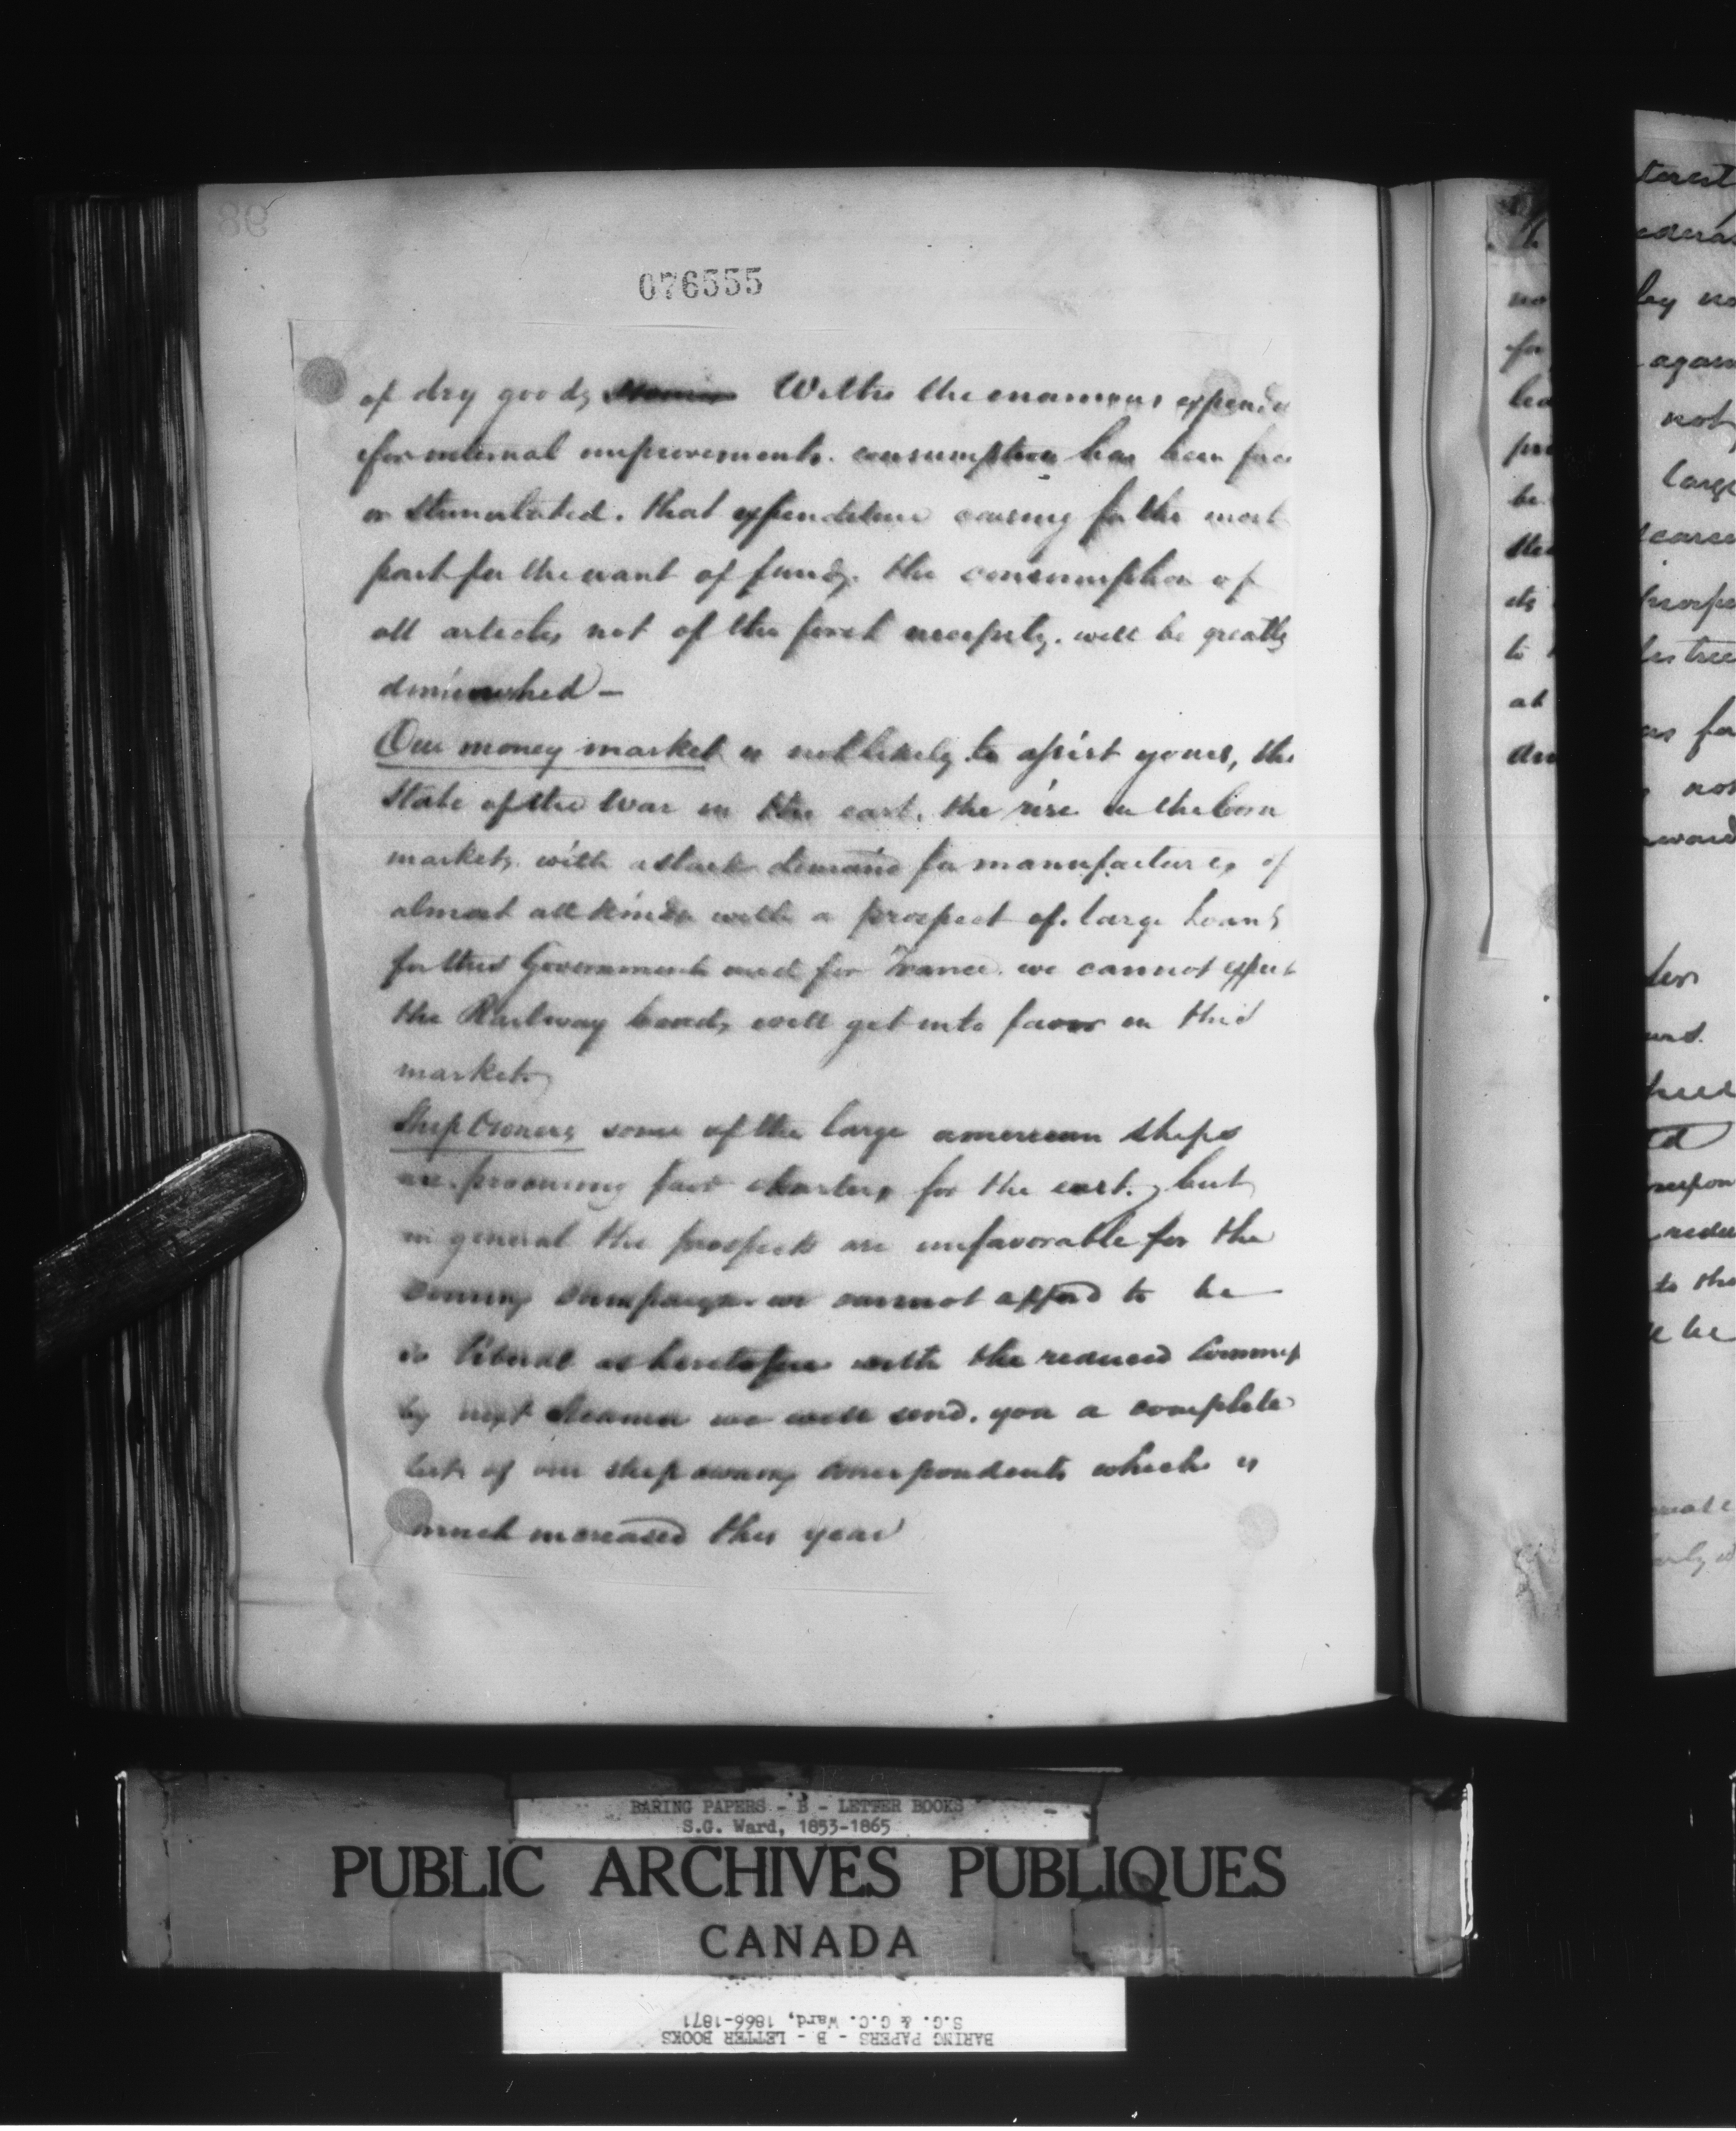 076555
of dry goods With the enormous expendi
for internal improvements. consumption has been
or stimulated. that expenditure ceasing for the most
part for the want of funds. the consumption of
all articles not of the first necessity. will be greatly
diminished –
Our money market is not likely to assist yours, the
State of the War in the east. the rise in the Corn
markets. with a slack demand for manufactures of
almost all kinds with a prospect of large Loans
for this Government and for France. we cannot expect
the Railway bonds will get into favor in this
market.
Ship Owners some of the large american ships
are procuring fair charters for the east. but
in general the prospects are unfavorable for the
coming campaign. we cannot afford to be
so liberal as heretofore with the reduced Commis
by next steamer we will send. you a complete
list of our ship owning correspondents which is
much increased this year
BARING PAPERS - B - LETTER BOOKS
S.G. Ward, 1853-1865
PUBLIC ARCHIVES PUBLIQUES
CANADA
BARING PAPERS - B - LETTER BOOKS
S.G. & G.C. Ward, 1866-1871